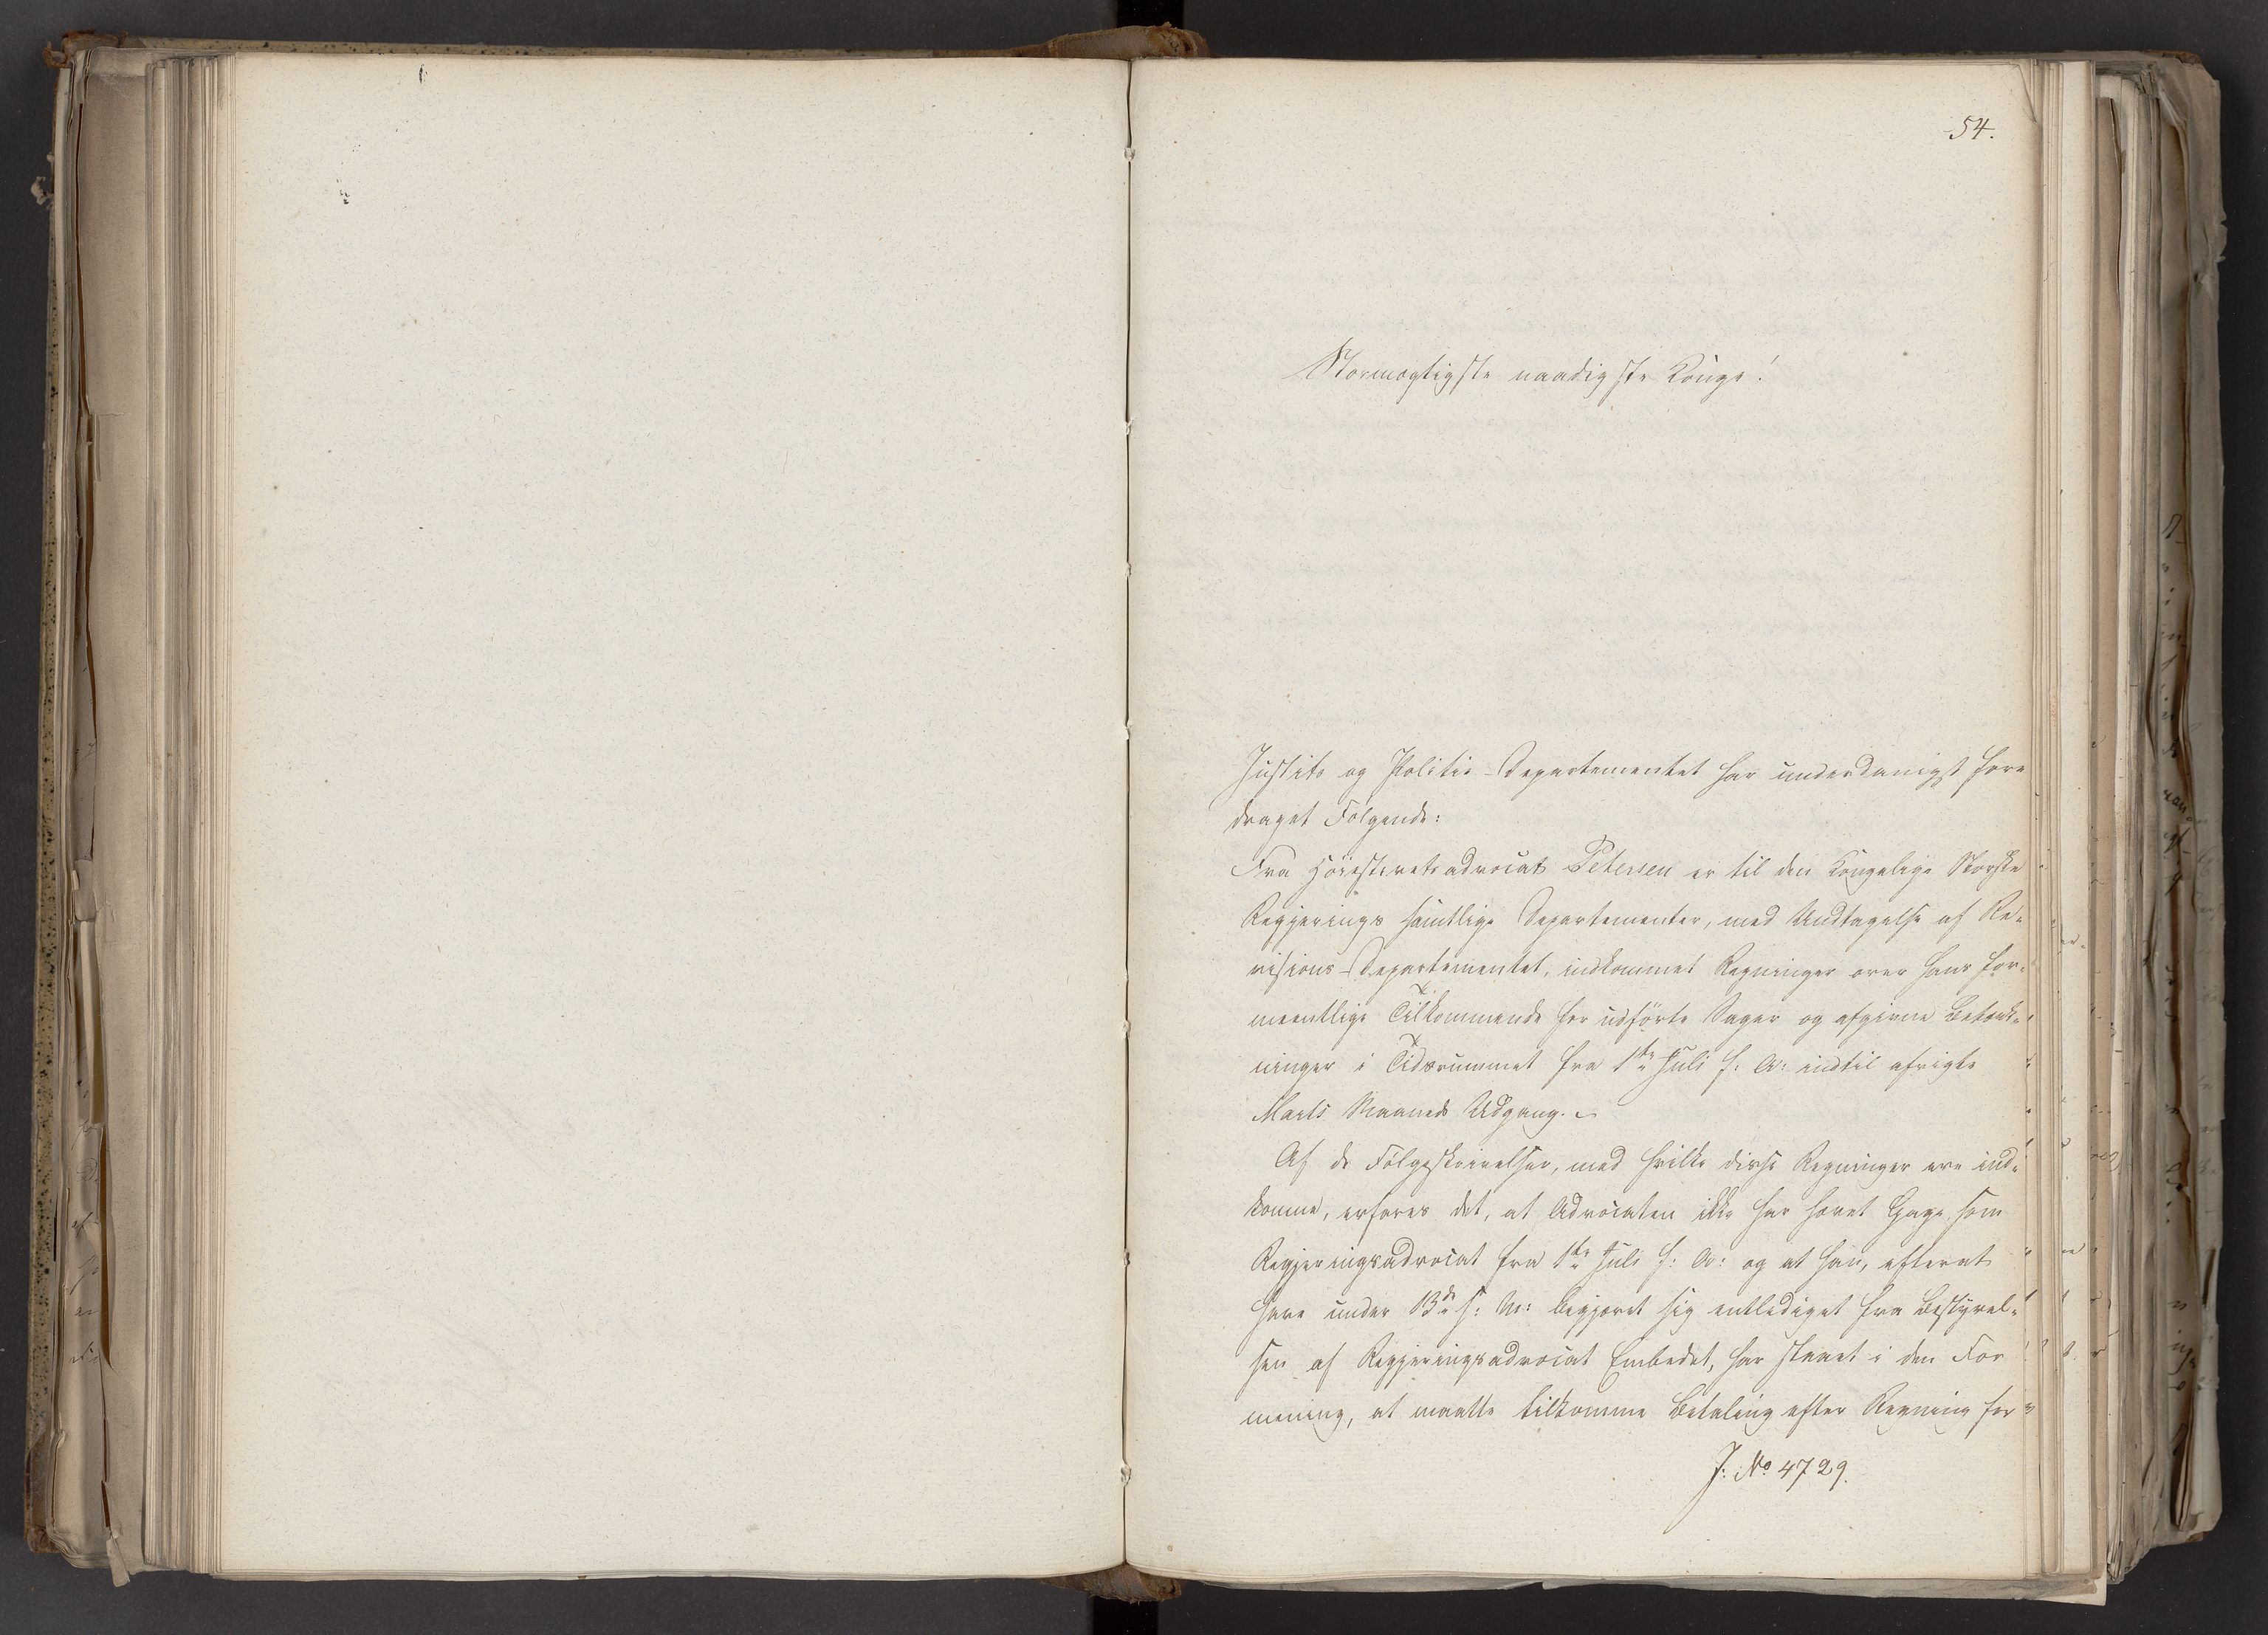 54.
Stormægtigste naadigste Konge!
Justits og Politie-Departementet har underdanigst fore
draget Følgende:
Fra Höiesteretsadvocat Petersen er til den Kongelige Norske
Regjerings samtlige Departementer, med Undtagelse af Re-
visions-Departementet, indkommet Regninger over hans for-
meentlige Tilkommende for udförte Sager og afgivne Betænk-
ninger i Tidsrummet fra 1ste Juli f: A: indtil afvigte
Marts Maaneds Udgang.
Af de Fölgeskrivelser, med hvilke disse Regninger ere ind-
komne, erfares det, at Advocaten ikke har hævet Gage som
Regjeringsadvocat fra 1ste Juli f: A: og at han, efterat
have under 13de s: M: begjæret sig entlediget fra Bestyrel-
sen af Regjeringsadvocat Embedet, har staaet i den For
mening, at maatte tilkomme Betaling efter Regning for
J: No 4729.